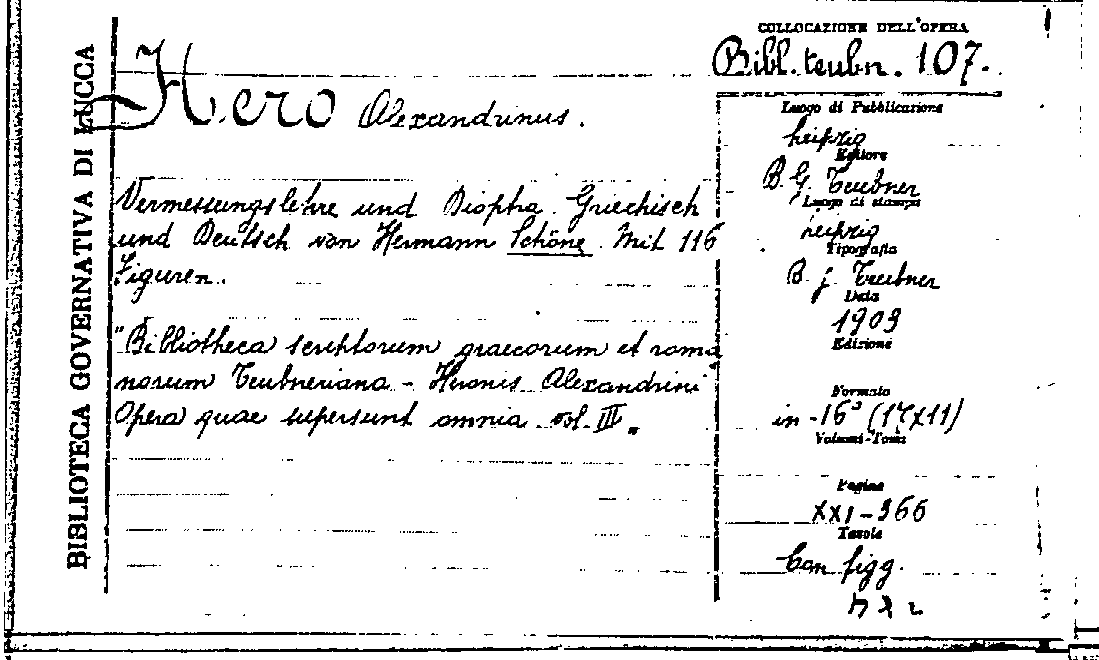 BIBLIOTECA GOVERNATIVA DI LUCCA
Hero Alexandrinus.
Vermessungslehre und Dioptra. Griechisch
und Deutsch von Hermann Schöne. Mit 116
Figuren.
"Bibliotheca scriptorum graecorum et roma
norum Teubneriana - Heronis Alexandrini
Opera quae supersunt omnia vol. III"
COLLOCAZIONE DELL'OPERA
Bibl. teubn. 107.
Luogo di Pubblicazione
Leipzig
Editore
B. G. Teubner
Luogo di stampa
Leipzig
Tipografia
B. G. Teubner
Data
1903
Edizione
Formato
in-16° (17x11)
Volumi-Tomi
Pagine
XXI-366
Tavole
Con figg.